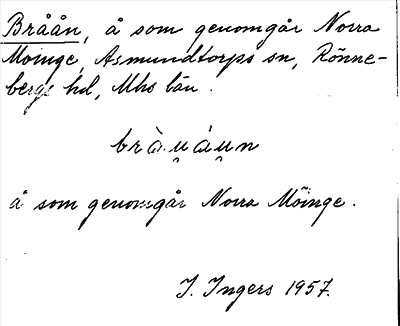 Bråån, å som genomgår Norra
Möinge, Asmundtorps sn, Rönne-
bergs hd, Mhs län.
bràu̯áu̯n
å som genomgår Norra Möinge.
I. Ingers 1957.